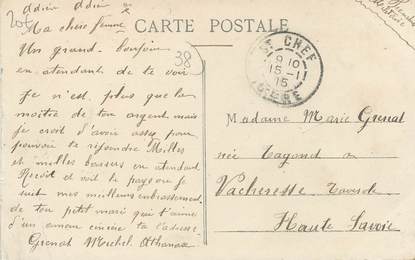 adieu adieu
206
Ma chere femme
CARTE POSTALE
Un grand bonjour
38
en attendant de te voir
Je n'est plus que la
moitre de ton argent mais
je croit d'avoir assez pour
pouvoir te repondre Milles
et milles bassers en attendant
Recoit et voit le pays ou je
suit mes meilleurs enbrassement
de ton petit mari qui t'aime
d'un amour ta l'adresse
Grenat Michel Athanase
ST CHEF
9 10
15 - 11
15
ISERE
Madame Marie Grenat
née Tagand a
Vacheresse
Haute Savoie